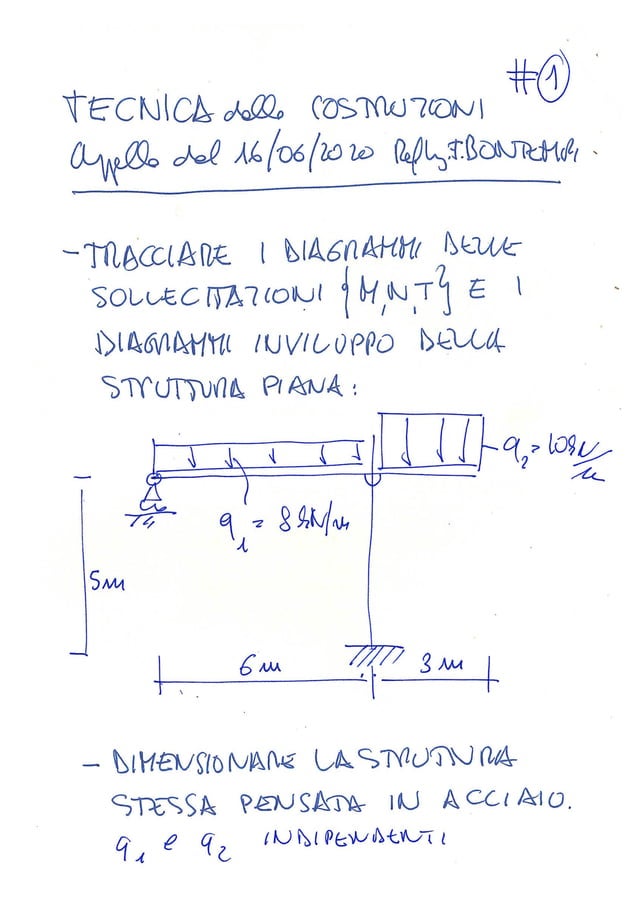 #1
TECNICA delle COSTRUZIONI
Appello del 16/06/2020 F.BONTEMPI.
- TRACCIARE I DIAGRAMMI DELLE
SOLLECITAZIONI {M,N,T} E I
DIAGRAMMI INVILUPPO DELLA
STRUTTURA PIANA:
q2 = 10 kN/m
q1 = 8 kN/m
5m
6 m
3 m
- DIMENSIONARE LA STRUTTURA
STESSA PENSATA IN ACCIAIO.
q1 e q2 INDIPENDENTI